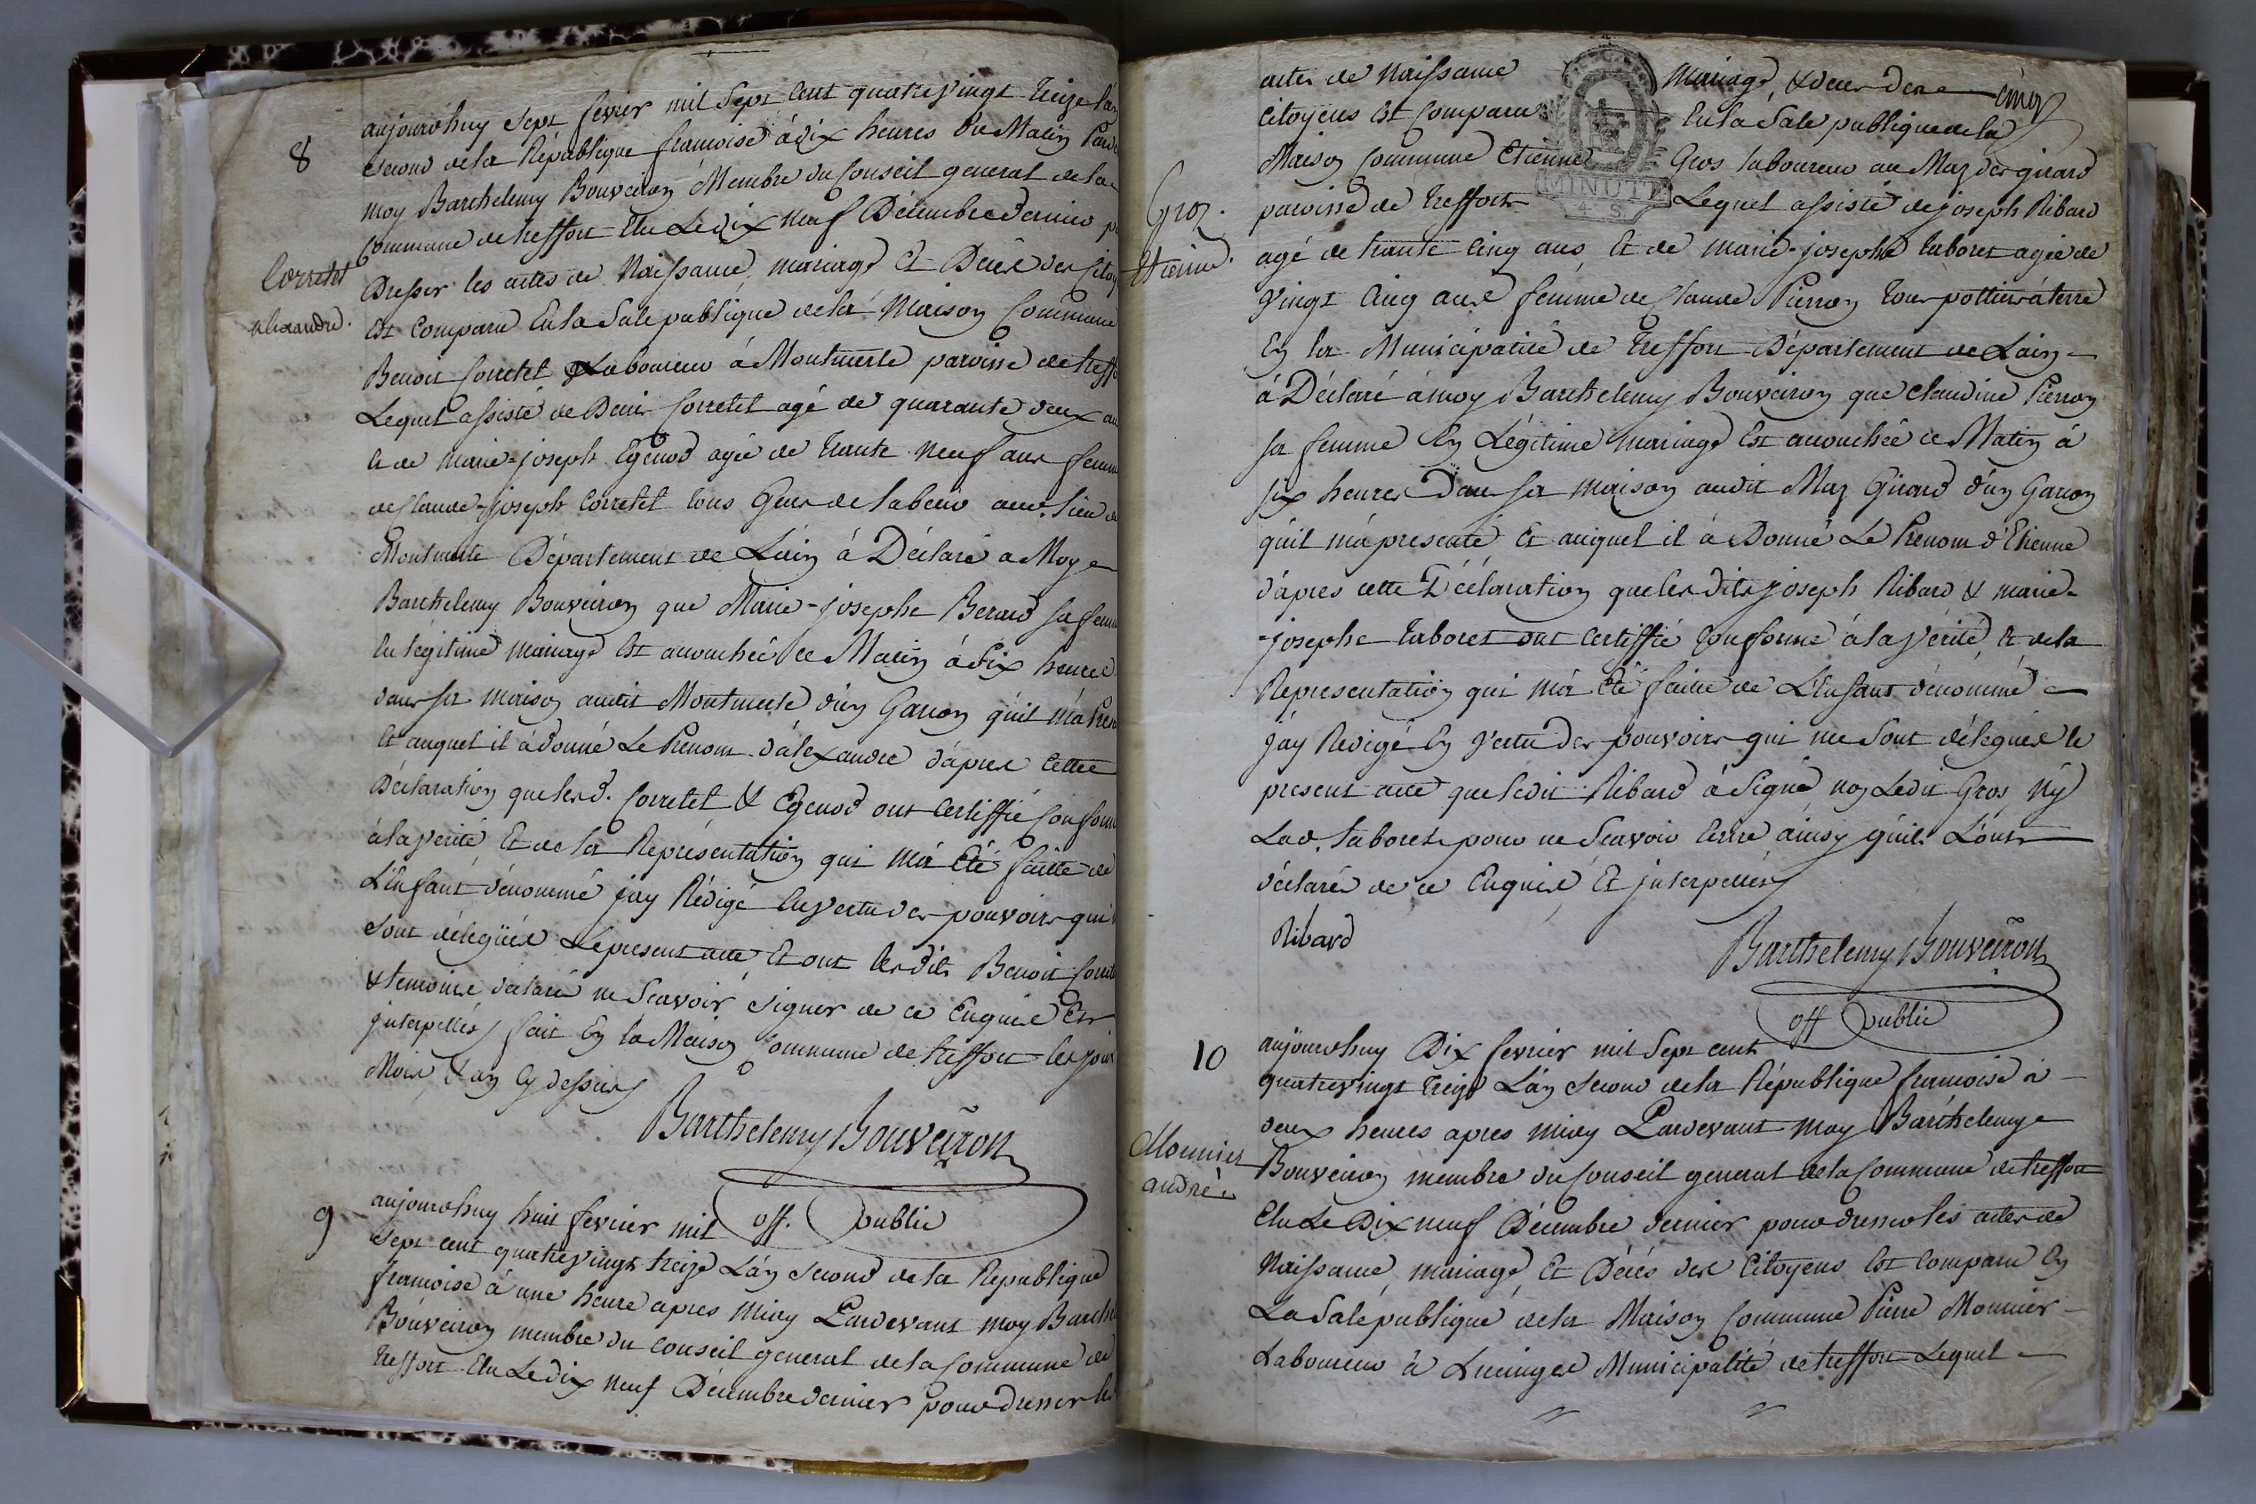 8
Corretet
alexandre.
aujourdhuy sept fevrier mil sept cent quatrevingt Treize
second de la République francoise à dix heures du Matin
moy Barthelemy Bouveiron Membre du Conseil general de la
Commune de treffort Elu Le dix neuf Décembre dernier
Dresser les actes de Naissance, mariage Et Décès des
Est comparu En la Sale publique de la Maison Commune
Benoit Corretet Laboureur à Montmerle paroisse de
Lequel assisté de Denis Corretet agé de quarante deux
Et de marie-joseph Egenod agée de trante neuf ans
de Claude-joseph Corretet tous Gens de labeur aud. lieu
Montmerle Département de L'ain à Déclaré a Moy
Barthelemy Bouveiron que Marie-josephe Berard sa
En légitime mariage Est accouchée ce Matin à Six heures
dans sa maison audit Montmerle d'un Garcon qu'il m'à
Et auquel il à donné Le Prenom d'alexandre d'après cette
Déclaration que lesd. Corretet & Egenod ont certiffié
à la verité Et de la Représentation qui m'à été faitte de
L'Enfant dénommé j'ay Rédigé En vertu des pouvoirs qui
sont délegués Le present acte Et ont lesdits Benoit
& temoins déclaré ne Scavoir signer de ce Enquis Et
jnterpellés, fait En la Maison Commune de treffort les jour
Mois, & an Cy dessus
Barthelemy Bouveiron
off. public
9
aujourdhuy huit fevrier mil
Sept cent quatrevingt treize L'an second de la Republique
francoise à une heure apres Midy Pardevant moy
Bouveiron membre du conseil general de la commune de
treffort Elu Le dix neuf Décembre dernier pour dresser
Groz.
Etienne.
actes de Naissance Mariage, & deces des
Citoyens Est Comparu En la Sale publique de la
Maison Commune Etienne Gros laboureur au Maz des girard
paroisse de treffort Lequel assisté de joseph Ribard
MINUTE
4. S.
agé de trante cinq ans Et de marie-josephe taboret agée de
Vingt Cinq ans femme de Claude Pierron tous pottiers à terre
En la Municipalité de treffort Département de L'ain
à Déclaré à moy Barthelemy Bouveiron que claudine Pierron
sa femme En Légitime mariage Est accouchée ce Matin à
six heures Dans sa maison audit Maz Girard d'un Garcon
qu'il m'à presenté, Et auquel il à Donné Le Prenom d'Etienne
d'apres cette Déclaration que lesdits joseph Ribard & marie-
josephe taboret ont certiffié conforme à la verité, Et de la
Representation qui m'à été faitte de L'Enfant dénommé
j'ay Redigé En vertu des pouvoirs qui me sont délegués le
present acte que ledit Ribard à Signé non Ledit Gros Ny
Lad. taboret pour ne Scavoir Ecrire ainsy qu'ils L'ont
déclaré de ce Enquis Et jnterpellés
Ribard
Barthelemy Bouveiron
off public
10
Monnier
andré
aujourdhuy Dix fevrier mil Sept cent
quatrevingt treize L'an second de la République francoise à
deux heures apres midy Pardevant moy Barthelemy
Bouveiron membre du Conseil general de la Commune de treffort
Elu Le Dix neuf Décembre dernier pour dresser les actes de
Naissance, mariage, Et Décés des Citoyens Est comparu En
La Sale publique de la Maison Commune Pierre Monnier
Laboureur à Lucinges Municipalité de treffort Lequel